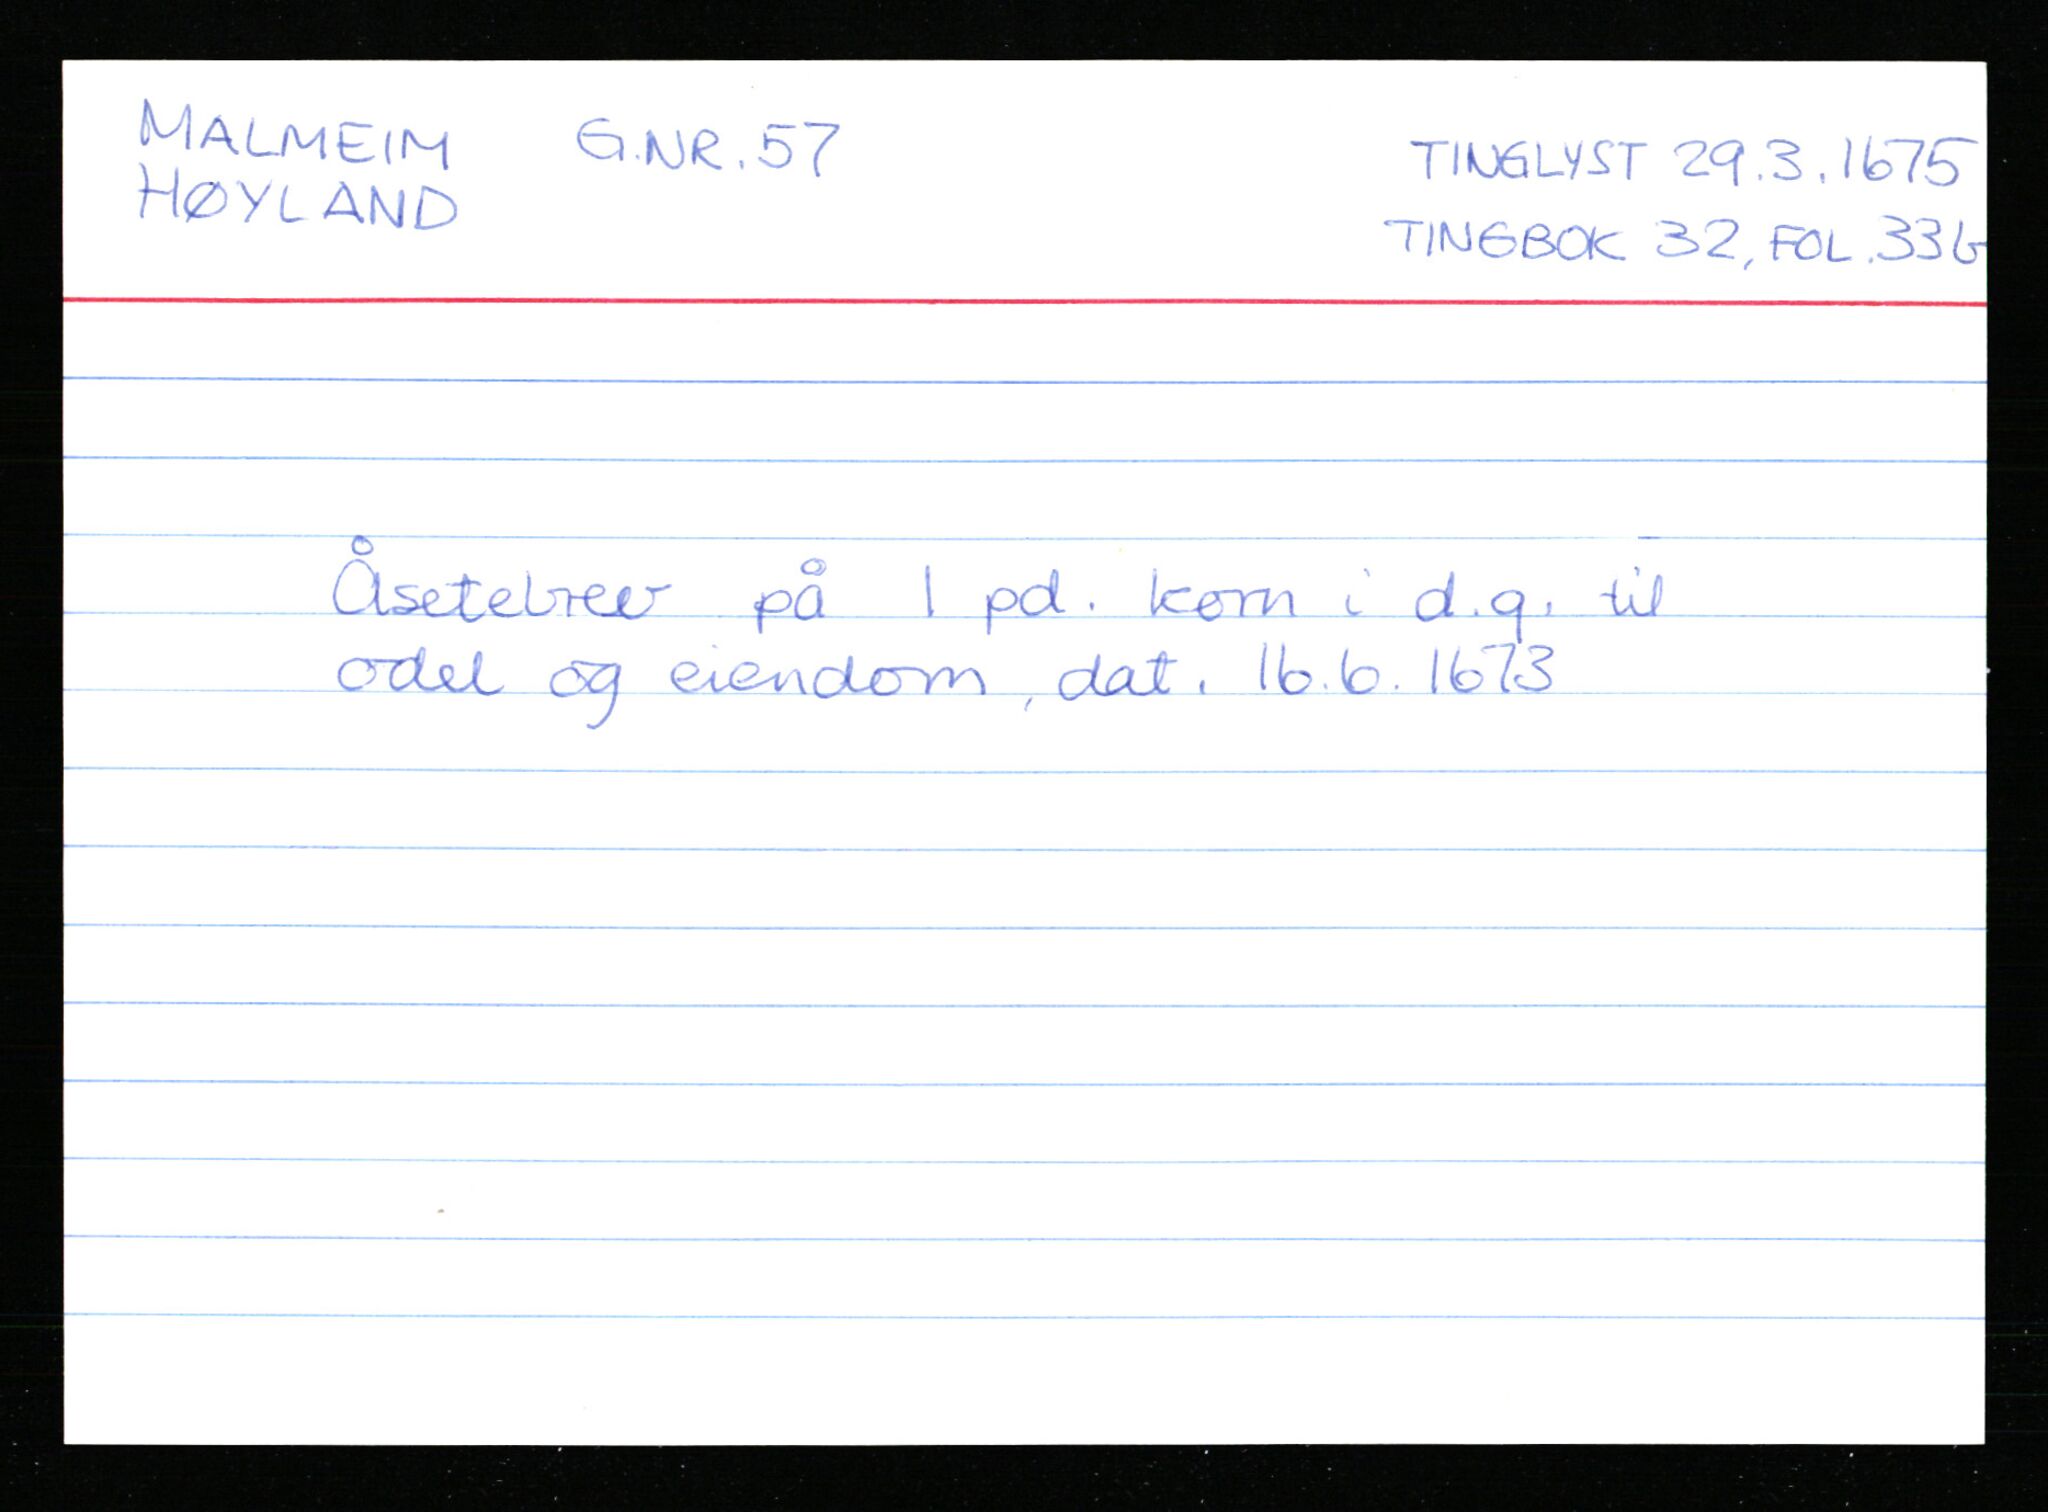 MALMEIM G.NR. 57
HØYLAND
TINGLYST 29.3.1675
TINGBOK 32, FOL. 33b
Åsetebrev på 1 pd. korn i d.g. til
odel og eiendom, dat. 16.6.1673